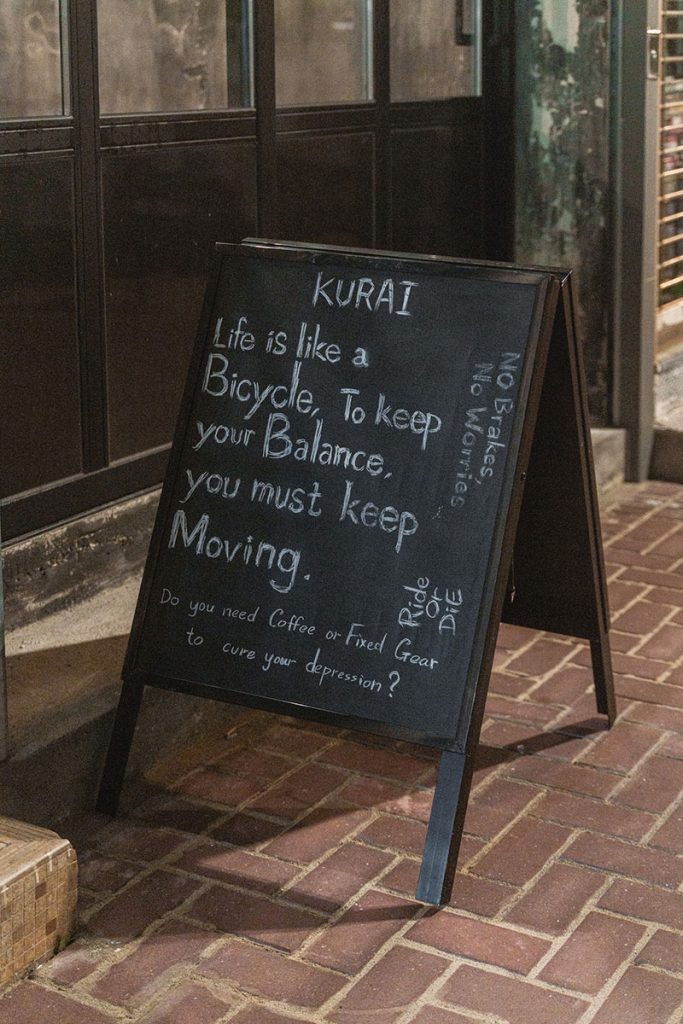 KURAI
Life is like a
Bicycle, To keep
your Balance,
you must keep
Moving.
NO Brakes,
No Worries
Ride
Or
DiE
Do you need Coffee or Fixed Gear
to cure your depression?